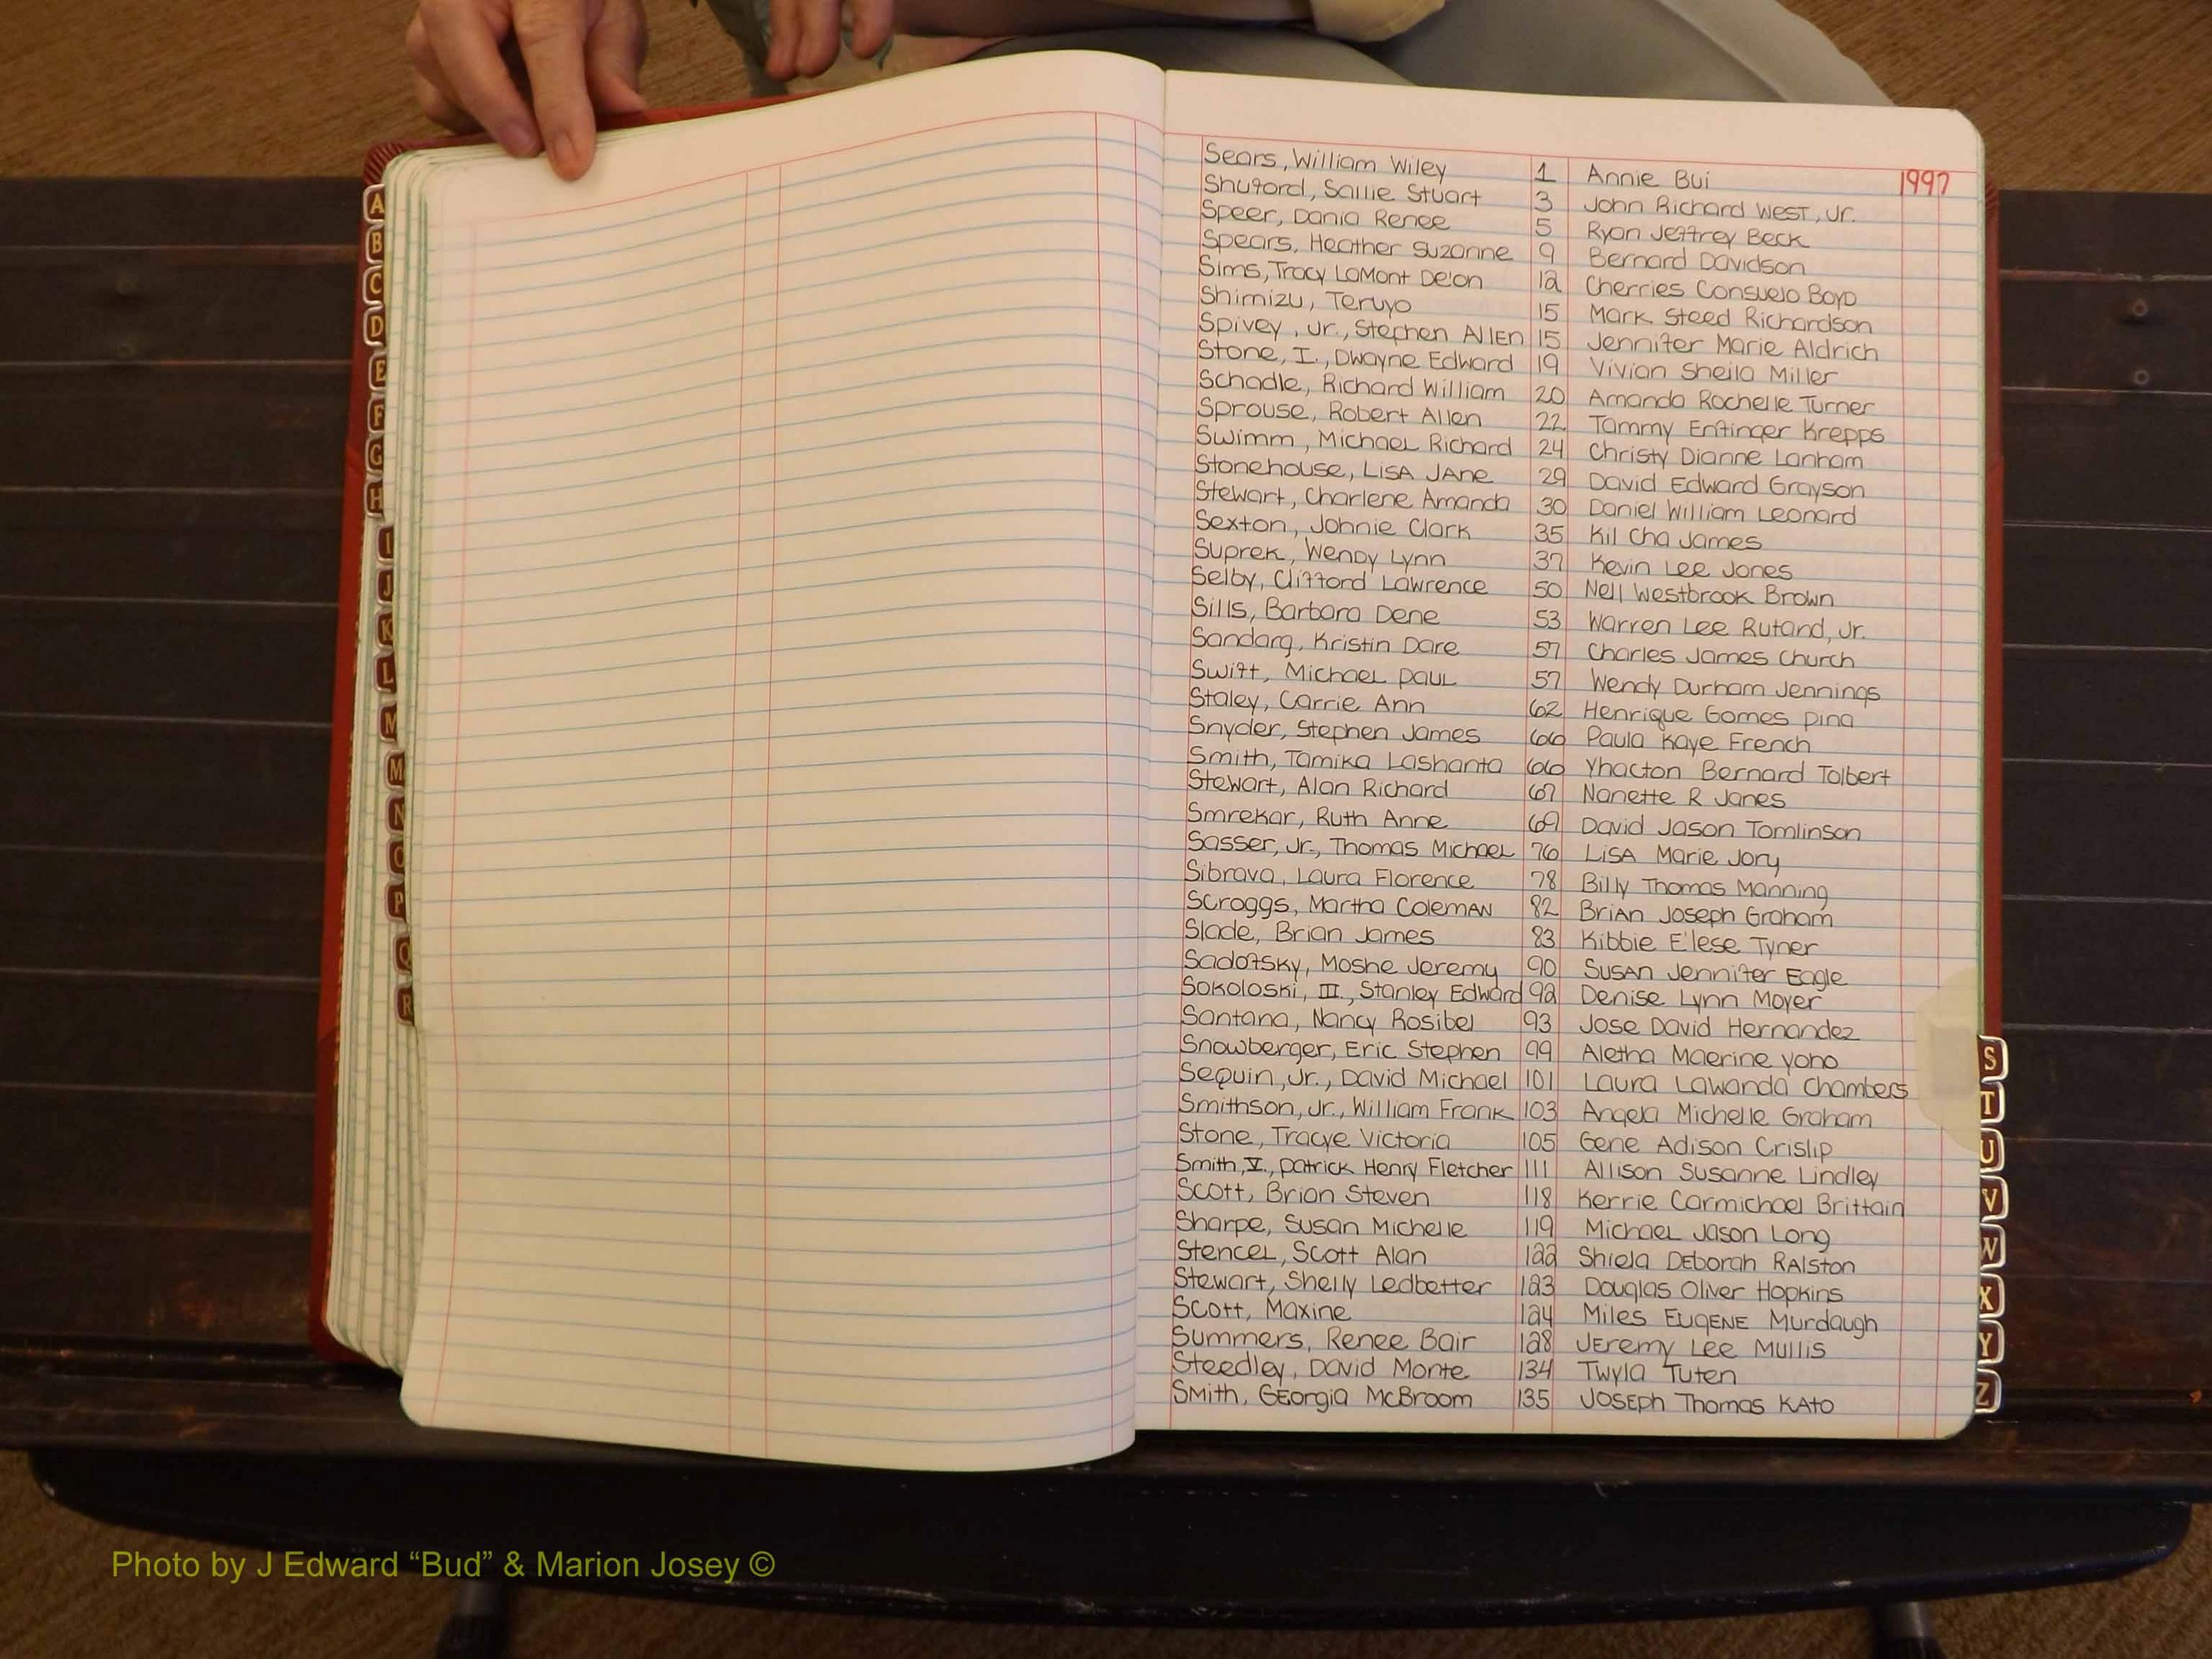 1997
Sears, William Wiley 1 Annie Bui
Shuford, Sallie Stuart 3 John Richard West, Jr.
Speer, Dania Renee 5 Ryan Jeffrey Beck
Spears, Heather Suzanne 9 Bernard Davidson
Sims, Tracy LaMont De'on 12 Cherries Consuelo Boyd
Shimizu, Teruyo 15 Mark Steed Richardson
Spivey, Jr., Stephen Allen 15 Jennifer Marie Aldrich
Stone, I., Dwayne Edward 19 Vivian Sheila Miller
Schadle, Richard William 20 Amanda Rochelle Turner
Sprouse, Robert Allen 22 Tammy Enfinger Krepps
Swimm, Michael Richard 24 Christy Dianne Lanham
Stonehouse, Lisa Jane 29 David Edward Grayson
Stewart, Charlene Amanda 30 Daniel William Leonard
Sexton, Johnie Clark 35 Kil Cha James
Suprek, Wendy Lynn 37 Kevin Lee Jones
Selby, Clifford Lawrence 50 Nell Westbrook Brown
Sills, Barbara Dene 53 Warren Lee Rutand, Jr.
Sandarg, Kristin Dare 57 Charles James Church
Swift, Michael Paul 57 Wendy Durham Jennings
Staley, Carrie Ann 62 Henrique Gomes Pina
Snyder, Stephen James 66 Paula Kaye French
Smith, Tamika Lashanta 66 Yhacton Bernard Tolbert
Stewart, Alan Richard 67 Nanette R Janes
Smrekar, Ruth Anne 69 David Jason Tomlinson
Sasser, Jr., Thomas Michael 76 Lisa Marie Jory
Sibrava, Laura Florence 78 Billy Thomas Manning
Scroggs, Martha Coleman 82 Brian Joseph Graham
Slade, Brian James 83 Kibbie E'lese Tyner
Sadofsky, Moshe Jeremy 90 Susan Jennifer Eagle
Sokoloski, III., Stanley Edward 92 Denise Lynn Moyer
Santana, Nancy Rosibel 93 Jose David Hernandez
Snowberger, Eric Stephen 99 Aletha Maerine Yoho
Sequin, Jr., David Michael 101 Laura Lawanda Chambers
Smithson, Jr., William Frank 103 Angela Michelle Graham
Stone, Tracye Victoria 105 Gene Adison Crislip
Smith, V., Patrick Henry Fletcher 111 Allison Susanne Lindley
Scott, Brian Steven 118 Kerrie Carmichael Brittain
Sharpe, Susan Michelle 119 Michael Jason Long
Stencel, Scott Alan 122 Shiela Deborah Ralston
Stewart, Shelly Ledbetter 123 Douglas Oliver Hopkins
Scott, Maxine 124 Miles Eugene Murdaugh
Summers, Renee Bair 128 Jeremy Lee Mullis
Steedley, David Monte 134 Twyla Tuten
Smith, Georgia McBroom 135 Joseph Thomas Kato
A
B
C
D
E
F
G
H
I
J
K
L
M
M
N
O
P
Q
R
S
T
U
V
W
X
Y
Z
Photo by J Edward “Bud” & Marion Josey ©